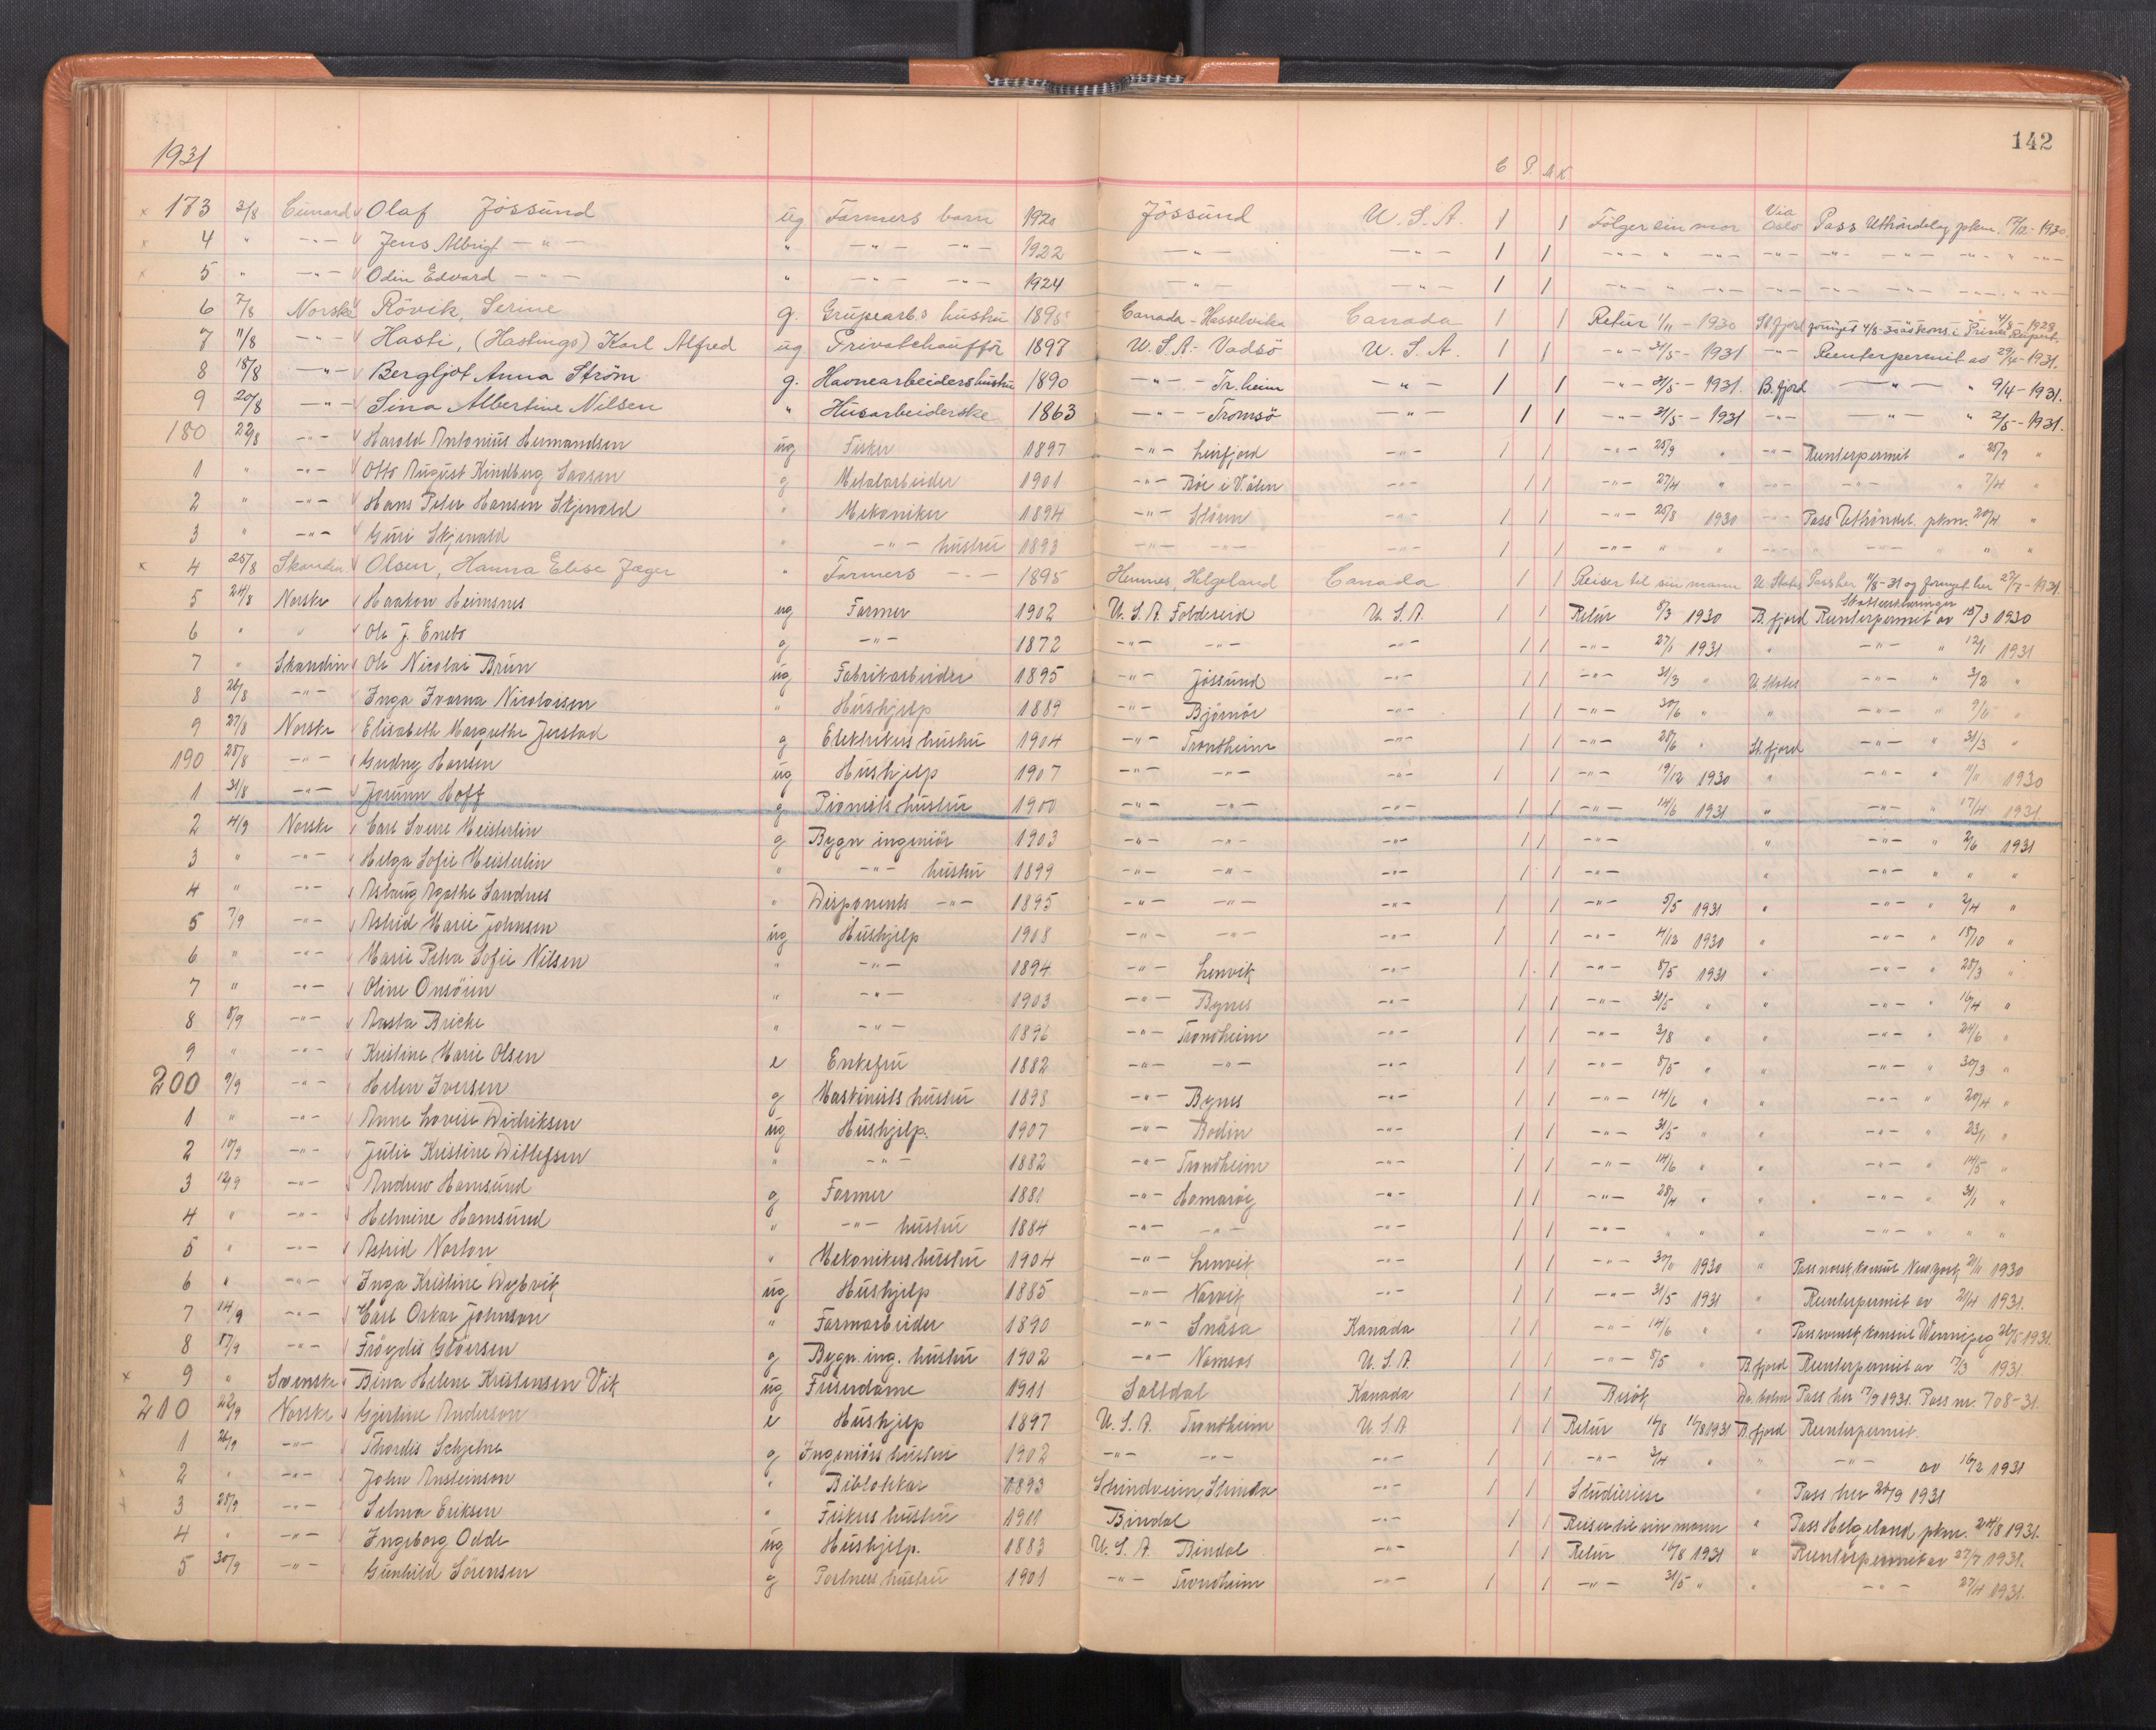 1931 142
C P. M K.
x 173 3/8 Cunard Olaf Jössund ug Farmers barn 1920 Jössund U.S.A. 1 1 Fölger sin mor Via Oslo Pass Uttröndelag pkm. 17/12-1930.
x 4 " -"- Jens Albrigt -"- " -"- -"- 1922 -"- -"- 1 1 -"- " -"- -"- -"- -"- -"- " -"-
x 5 " -"- Odin Edvard -"- " -"- -"- 1924 -"- -"- 1 1 -"- " -"- -"- -"- -"- -"- " -"-
6 7/8 Norske Rövik, Serine g. Grupearb.s hustru 1898 Canada-Hasselvika Canada 1 1 Retur 1/11-1930 St.fjord 4/8-1928 fornyet 4/8-30 kons. i Prince Rupert.
7 11/8 -"- Hasti, (Hastings) Karl Alfred ug Privatchaufför 1897 U.S.A.-Vadsö U.S.A. 1 1 -"- 31/5-1931 -"- Reenterpermit av 29/4-1931.
8 18/8 -"- Bergljot Anna Ström g. Havnearbeidershustru 1890 -"- -Tr.heim -"- 1 1 -"- 31/5-1931. B.fjord -"- " 9/4-1931.
9 20/8 -"- Sina Albertine Nilsen " Husarbeiderske 1863 -"- -Tromsö -"- 1 1 -"- 31/5-1931 -"- -"- " 2/5-1931.
180 22/8 -"- Harald Antonius Hermandsen ug Fisker 1897 -"- Leirfjord -"- 1 1 -"- 25/9 " -"- Reenterpermit " 25/9 "
1 " -"- Otto August Kindberg Larsen g Metalarbeider 1901 -"- Böe i V.ålen -"- 1 1 -"- 27/4 " -"- -"- " 7/4 "
2 " -"- Hans Peter Hansen Skjervold " Mekaniker 1894 -"- Stören -"- 1 1 -"- 25/8 1930 -"- Pass Uttröndel. pkm. 20/4 "
3 " -"- Guri Skjervold " -"- hustru 1893 -"- -"- -"- 1 1 -"- " " -"- " -"- " " "
x 4 25/8 Skandin. Olsen, Hanna Elise Jæger " Farmers -"- 1895 Hemnes, Helgeland Canada 1 1 Reiser til sin mann U. States Pass her 11/8-31 og fornyet her 27/7-1931.
5 24/8 Norske Haakon Heimsnes ug Farmer 1902 U.S.A. Foldereid U.S.A. 1 1 Retur 8/3 1930 B.fjord Reenterpermit av 15/3 1930
6 " " Ole J. Enebo g -"- 1872 -"- -"- -"- 1 1 -"- 27/1 1931 " -"- " 12/1 1931
7 " Skandin Ole Nicolai Brun ug Fabrikarbeider 1895 -"- Jössund -"- 1 1 -"- 31/3 " U States -"- " 3/2 "
8 26/8 -"- Inga Ivarna Nicolaisen " Hushjelp 1889 -"- Björnör -"- 1 1 -"- 30/6 " " -"- " 9/6 "
9 27/8 Norske Elisabeth Margrethe Jerstad g Elektrikers hustru 1904 -"- Trondheim -"- 1 1 -"- 28/6 " St.fjord -"- " 31/3 "
190 28/8 -"- Gudny Hansen ug Hushjelp 1907 -"- -"- -"- 1 1 -"- 19/12 1930 " -"- " 11/11 1930
1 31/8 -"- Jorunn Hoff g Pianists hustru 1900 -"- -"- -"- 1 1 -"- 14/6 1931 " -"- " 17/4 1931
2 4/9 Norske Carl Sverre Meisterlin g Bygn ingeniör 1903 -"- -"- -"- 1 1 -"- " -"- " 2/6 1931
3 " -"- Helga Sofie Meisterlin " -"- hustru 1899 -"- -"- -"- 1 1 -"- " -"- " " "
4 " -"- Aslaug Agathe Sandnes " Disponents -"- 1895 -"- -"- -"- 1 1 -"- 5/5 1931 " -"- " 2/4 "
5 7/9 Astrid Marie Johnsen ug Hushjelp 1908 -"- -"- -"- 1 1 -"- 4/12 1930 " -"- " 18/10 "
6 " -"- Marie Petra Sofie Nilsen " -"- 1894 -"- Lenvik -"- 1 1 -"- 8/5 1931 " -"- " 28/3 "
7 " -"- Oline Onsöien " -"- 1903 -"- Bynes -"- 1 1 -"- 31/5 " " -"- " 16/4 "
8 8/9 -"- Aasta Bricke " -"- 1896 -"- Trondheim -"- 1 1 -"- 3/8 " " -"- " 24/6 "
9 " -"- Kristine Marie Olsen e Enkefru 1882 -"- -"- -"- 1 1 -"- 8/5 " " -"- " 30/3 "
200 9/9 -"- Helen Iversen g Maskinists hustru 1898 -"- Bynes -"- 1 1 -"- 14/6 " " -"- " 20/4 "
1 " -"- Anne Lovise Didriksen ug Hushjelp. 1907 -"- Bodin -"- 1 1 -"- 31/5 " " -"- " 23/1 "
2 10/9 -"- Julie Kristine Ditlefsen " -"- 1882 -"- Trondheim -"- 1 1 -"- 14/6 " " -"- " 14/5 "
3 12/9 -"- Andrew Hamsund g Farmer 1881 -"- Hamaröy -"- 1 1 -"- 28/4 " " -"- " 31/1 "
4 " -"- Helmine Hamsund " -"- hustru 1884 -"- -"- -"- 1 1 -"- " " " -"- " " "
5 " -"- Astrid Norton " Mekanikers hustru 1904 -"- Lenvik -"- 1 1 -"- 1930 " Pass norsk konsul New York 2/11 1930
6 " -"- Inga Kristine Dybvik ug Hushjelp 1885 -"- Narvik -"- 1 1 -"- 31/5 1931 " Reenterpermit av 21/4 1931.
7 14/9 -"- Carl Oskar Johnson " Farmarbeider 1890 -"- Snåsa Kanada 1 1 -"- 14/6 " " Pass svensk konsul Winnipeg 26/5 1931.
8 17/9 -"- Fröydis Glöersen g Bygn. ing. hustru 1902 -"- Namsos U.S.A. 1 1 -"- 8/5 " B.fjord Reenterpermit av 17/3 1931
x 9 " Svenske Bina Helene Kristensen Vik ug Friserdame 1911 Saltdal Kanada 1 1 Besök Dr.holm Pass her 7/9 1931. Pass nr. 708-31.
210 22/9 Norske Gjertine Anderson e Hushjelp 1897 U.S.A. Trondheim U.S.A 1 1 Retur 16/8 16/8 1931 B.fjord Reenterpermit.
1 26/9 -"- Thordis Schjelne g Ingeniörs hustru 1902 -"- -"- -"- 1 1 -"- 3/4 " " -"- av 16/2 1931
x 2 " -"- John Ansteinson " Bibliotekar 1893 Strindheim, Strinda -"- 1 1 Studiereise " Pass her 26/9 1931
3 28/9 -"- Selma Eriksen " Fiskers hustru 1911 Bindal -"- 1 1 Reiser til sin mann " Pass Helgeland pkm. 24/8 1931.
4 " -"- Ingeborg Odde ug Hushjelp. 1883 U.S.A. Bindal -"- 1 1 Retur 16/8 1931 " Reenterpermit av 27/7 1931.
5 30/9 -"- Gunhild Sörensen g Portners hustru 1901 -"- Trondheim -"- 1 1 -"- 31/5 " " -"- 27/4 1931.